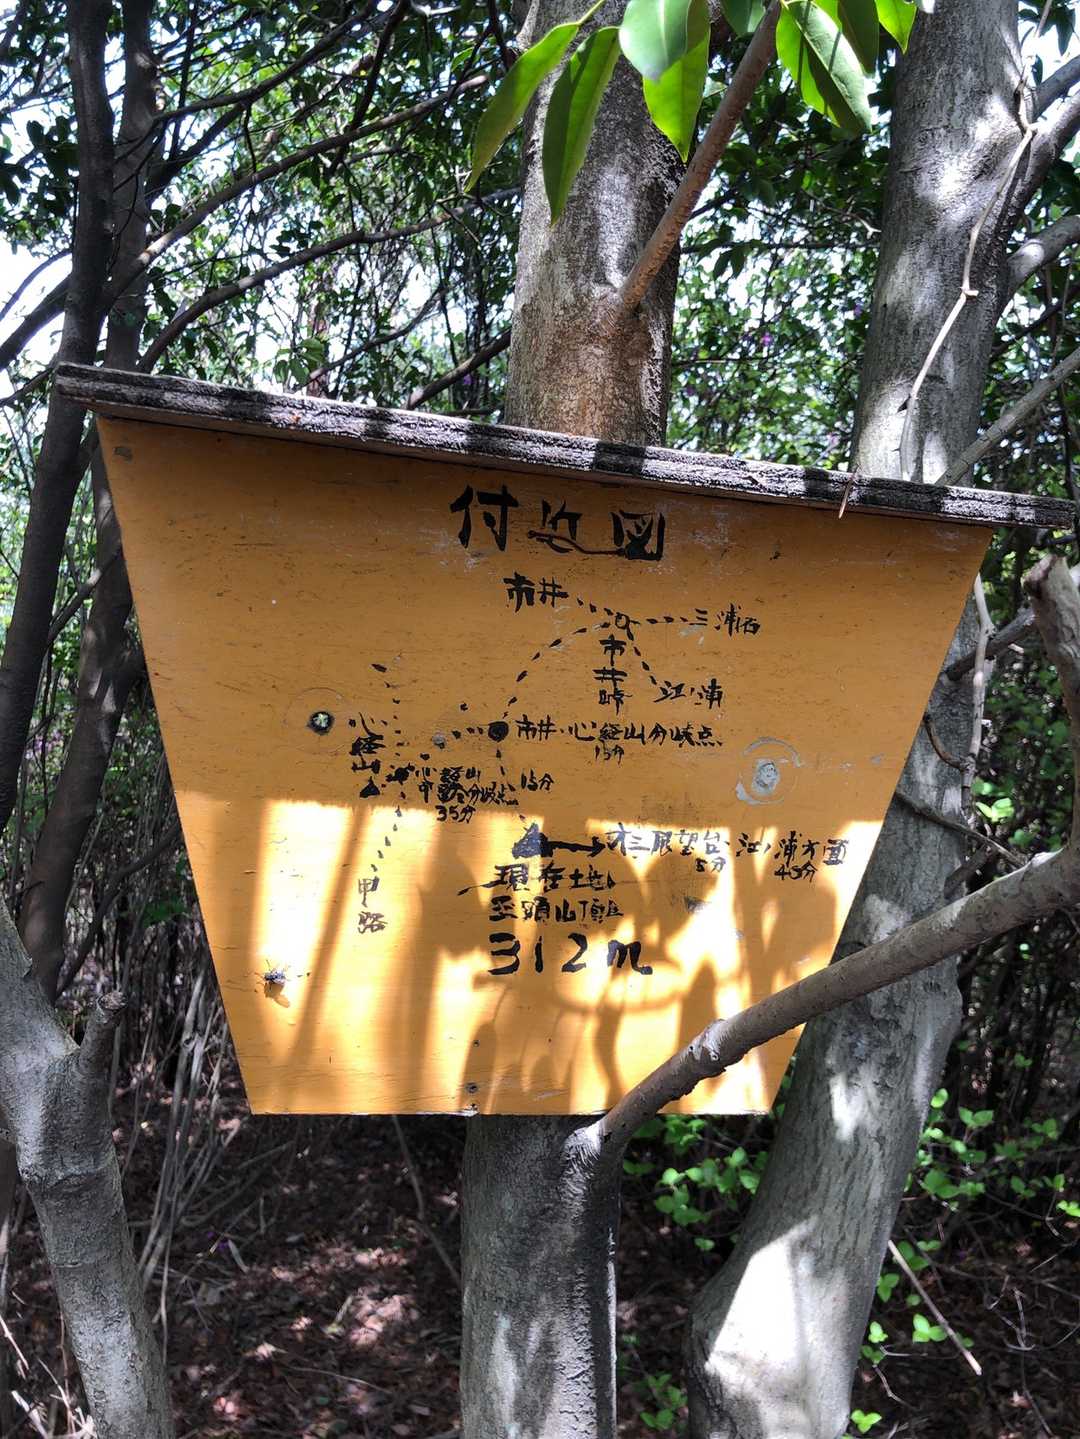 付近図
市井
三浦石
市井峠
江ノ浦
市井・心経山分岐点
15分
心経山
心経山
甲路分岐点
35分
15分
展望台
5分
江ノ浦方面
45分
現在地
王頭山頂上
312m
甲路